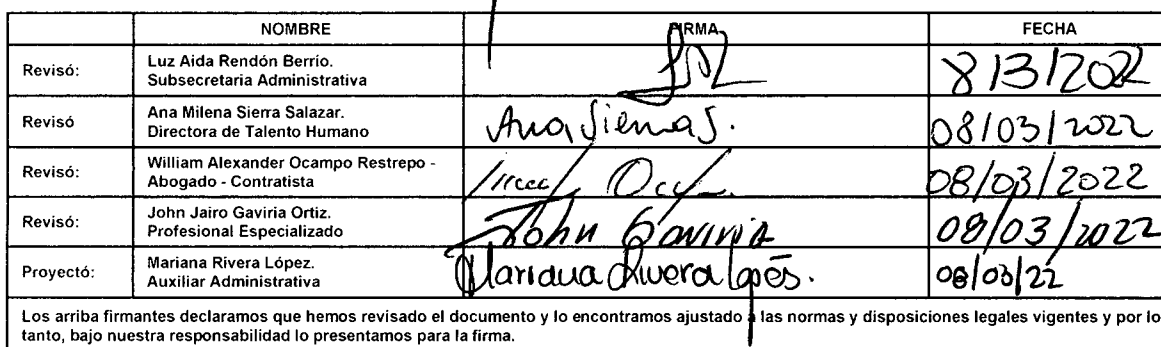 NOMBRE FIRMA FECHA
Revisó: Luz Aida Rendón Berrío.
Subsecretaria Administrativa
8/3/2022
Revisó Ana Milena Sierra Salazar.
Directora de Talento Humano
Ana Sierra S. 08/03/2022
Revisó: William Alexander Ocampo Restrepo -
Abogado - Contratista
08/03/2022
Revisó: John Jairo Gaviria Ortiz.
Profesional Especializado
John Gaviria 08/03/2022
Proyectó: Mariana Rivera López.
Auxiliar Administrativa
Mariana Rivera Lopés. 08/03/22
Los arriba firmantes declaramos que hemos revisado el documento y lo encontramos ajustado a las normas y disposiciones legales vigentes y por lo
tanto, bajo nuestra responsabilidad lo presentamos para la firma.